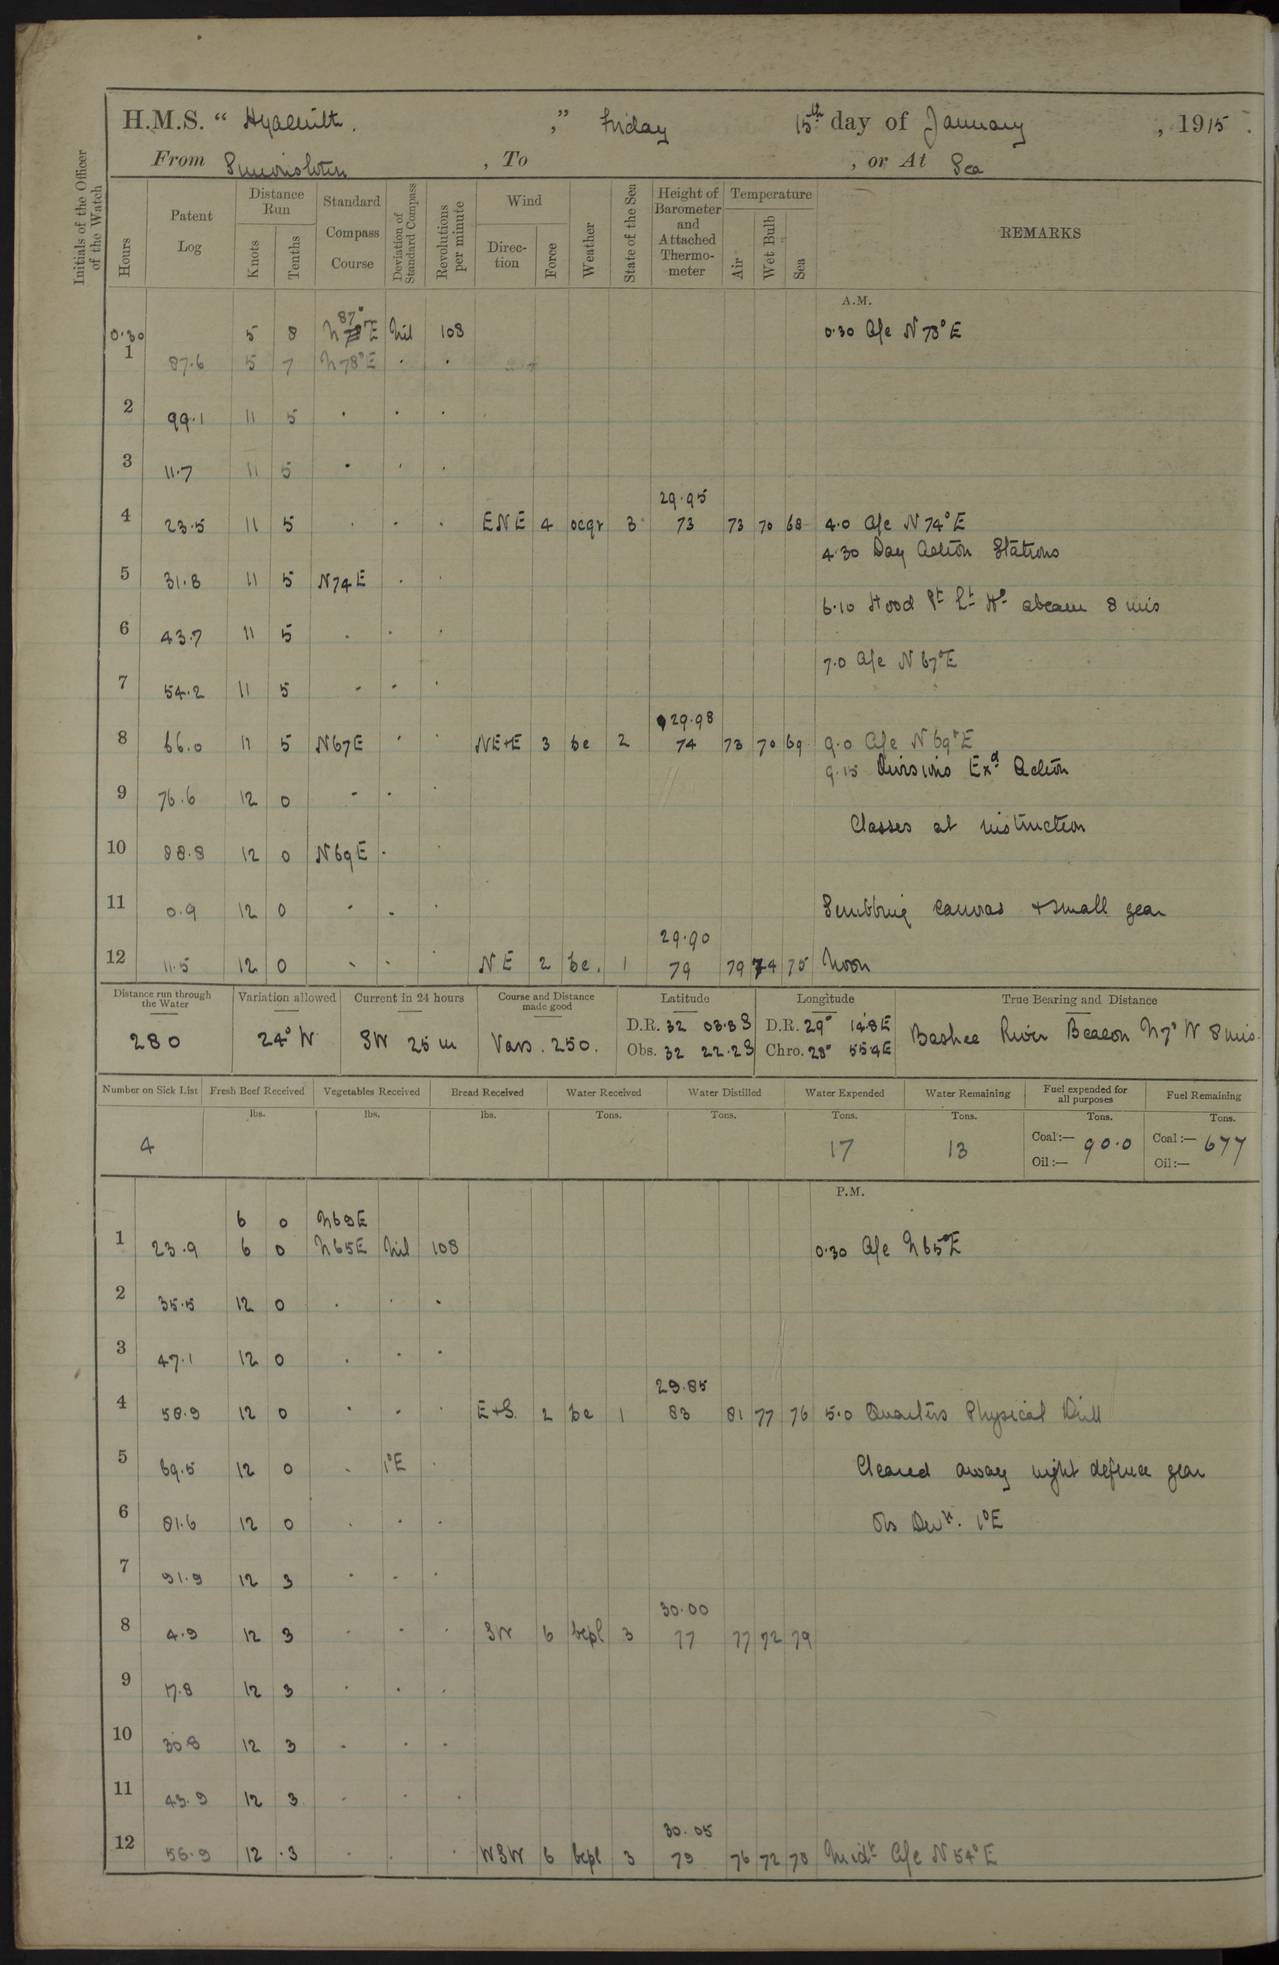 H.M.S. “ Hyacinth. ,” Friday 15th day of January , 1915 .
From Simonstown , To , or At Sea
Initials of the Officer of the Watch
Hours Patent Log Distance Run Knots Tenths Standard Compass Course Deviation of Standard Compass Revolutions per minute Wind Direction Force Weather State of the Sea Height of Barometer and Attached Thermometer Temperature Air Wet Bulb Sea REMARKS
A.M.
0.30 5 8 N 87° E Nil 108 0.30 A/c N 78° E
1 87.6 5 7 N 78° E . .
2 99.1 11 5 . . .
3 11.7 11 5 . . .
29.95
4 23.5 11 5 . . . ENE 4 ocqr 3 73 73 70 68 4.0 A/c N 74° E
4.30 Day Action Stations
5 31.8 11 5 N 74 E . .
6.10 Hood Pt Lt Ho abeam 8 mls
6 43.7 11 5 . . .
7.0 A/c N 67° E
7 54.2 11 5 . . .
29.98
8 66.0 11 5 N 67 E . . NE+E 3 bc 2 74 73 70 69 9.0 A/c N 69° E
9.15 Divisions Exd Action
9 76.6 12 0 . . .
Classes at instruction
10 88.8 12 0 N 69 E . .
11 0.9 12 0 . . . Scrubbing canvas + small gear
29.90
12 11.5 12 0 . . . NE 2 bc. 1 79 79 74 75 Noon
Distance run through the Water Variation allowed Current in 24 hours Course and Distance made good Latitude Longitude True Bearing and Distance
280 24° W SW 25 m Vars. 250. D.R. 32 03.8 S D.R. 29° 14.8 E Bashee River Beacon N 7° W 8 mls.
Obs. 32 22.2 S Chro. 28° 55.4 E
Number on Sick List Fresh Beef Received Vegetables Received Bread Received Water Received Water Distilled Water Expended Water Remaining Fuel expended for all purposes Fuel Remaining
lbs. lbs. lbs. Tons. Tons. Tons. Tons. Tons. Tons.
4 17 13 Coal :— 90.0 Coal :— 677
Oil :— Oil :—
P.M.
6 0 N 69 E
1 23.9 6 0 N 65 E Nil 108 0.30 A/c N 65° E
2 35.5 12 0 . . .
3 47.1 12 0 . . .
29.85
4 58.9 12 0 . . . E+S. 2 bc 1 83 81 77 76 5.0 Quarters Physical Drill
5 69.5 12 0 . 1° E . Cleared away night defence gear
6 81.6 12 0 . . . Obs Devn. 1° E
7 91.9 12 3 . . .
30.00
8 4.9 12 3 . . . SW 6 bcpl 3 77 77 72 79
9 17.8 12 3 . . .
10 30.8 12 3 . . .
11 43.9 12 3 . . .
30.05
12 56.9 12 .3 . . . WSW 6 bcpl 3 79 76 72 78 Midt A/c N 54° E